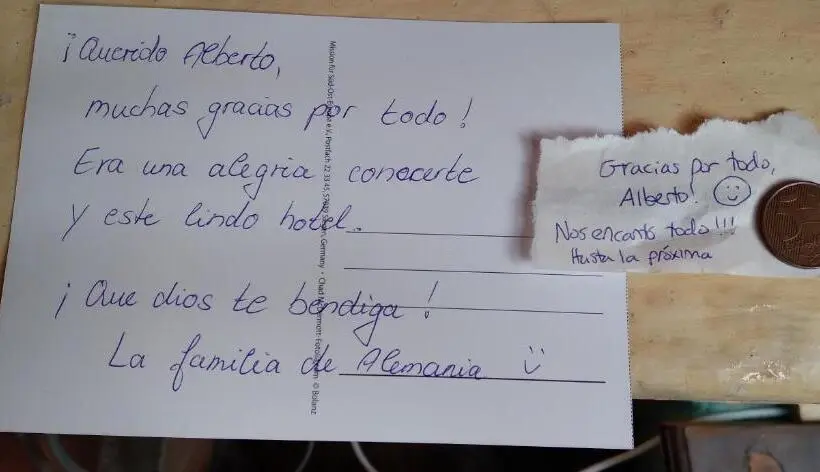 ¡Querido Alberto,
muchas gracias por todo!
Era una alegria conocerte
Y este lindo hotel.
¡Que dios te bendiga!
La familia de Alemania
Gracias por todo,
Alberto!
Nos encantó todo!!!
Hasta la próxima
Mission für Süd-Ost-Europa e.V., Postfach 22 33 45, Siegen, Germany • Fotolia.com © Bolanz